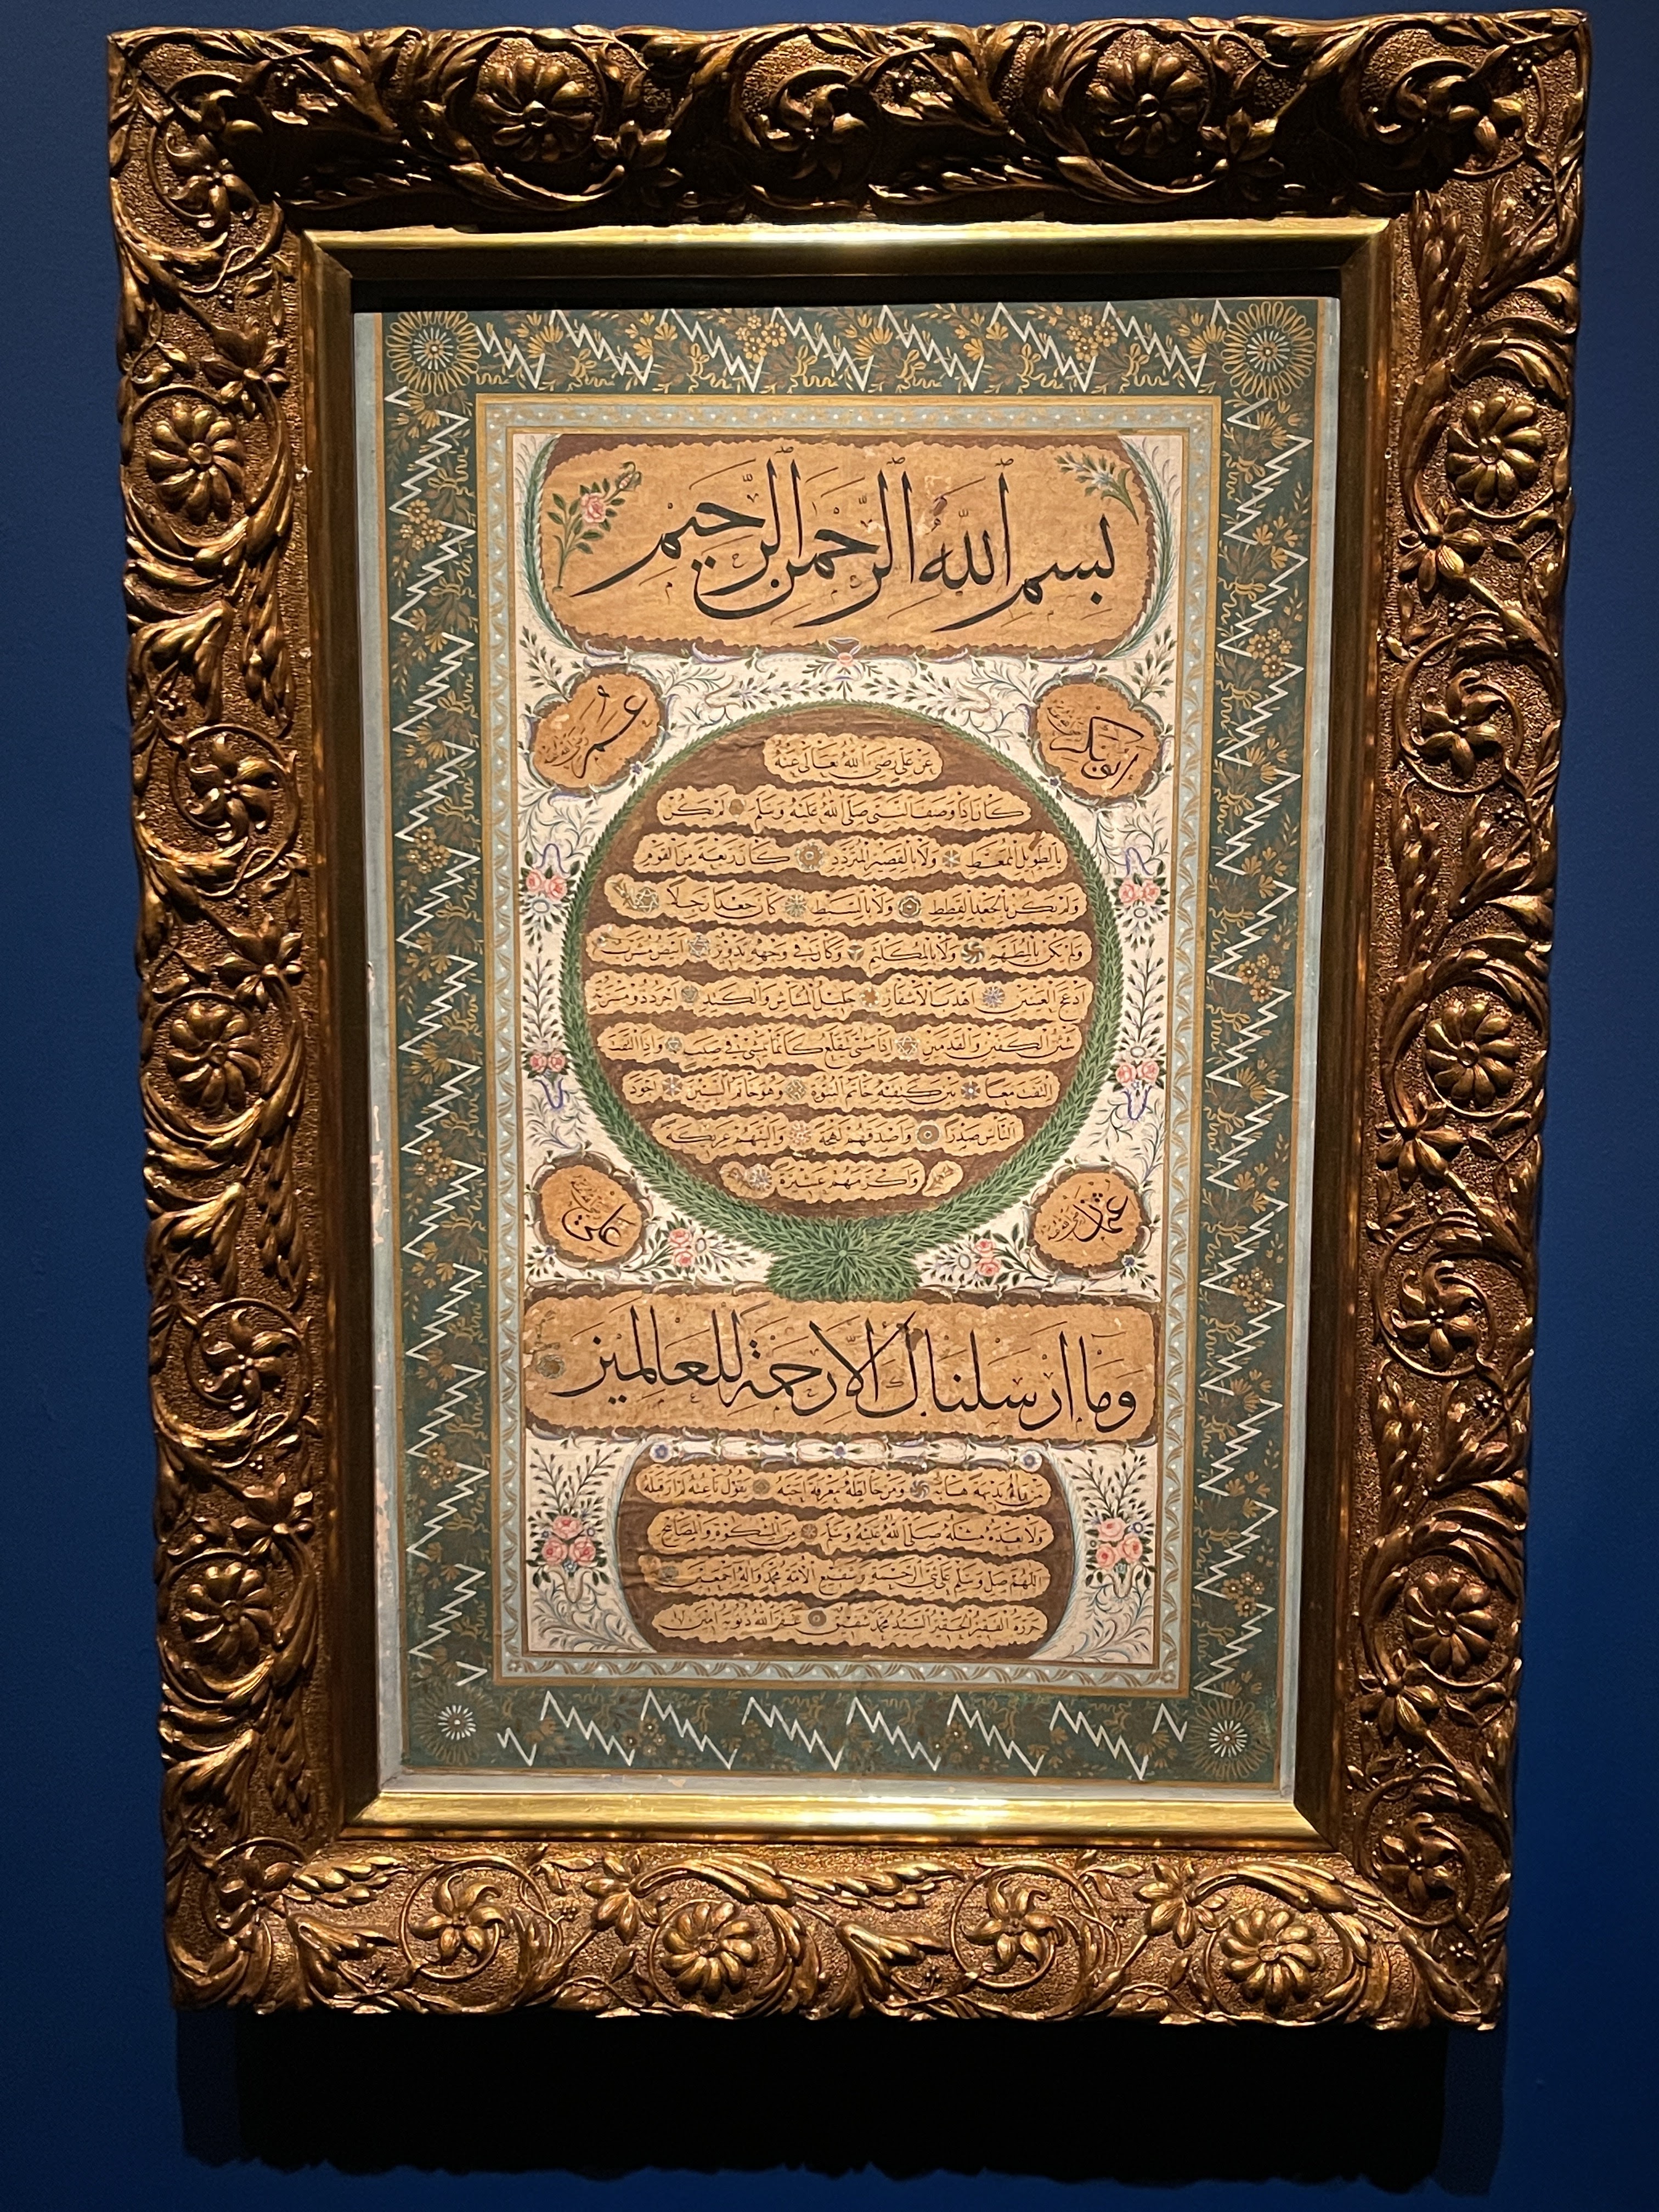 بسم الله الرحمن الرحيم
ابو بكر رضي الله عنه
عمر رضي الله عنه
عن علي رضي الله تعالى عنه
كان اذا وصف النبي صلى الله عليه وسلم لم يكن
بالطويل الممغط ولا بالقصير المتردد كان ربعة من القوم
ولم يكن بالجعد القطط ولا بالسبط كان جعدا رجلا
ولم يكن بالمطهم ولا بالمكلثم وكان في وجهه تدوير ابيض مشرب
ادعج العينين اهدب الاشفار جليل المشاش والكتد اجرد ذو مسربة
شثن الكفين والقدمين اذا مشى تقلع كانما يمشي في صبب واذا التفت
التفت معا بين كتفيه خاتم النبوة وهو خاتم النبيين اجود
الناس صدرا واصدقهم لهجة والينهم عريكة
واكرمهم عشيرة
عثمان رضي الله عنه
علي رضي الله عنه
وما ارسلناك الا رحمة للعالمين
من رآه بديهة هابه ومن خالطه معرفة احبه يقول ناعته لم ار قبله
ولا بعده مثله صلى الله عليه وسلم من المشكوة والمصابيح
اللهم صل وسلم على نبي الرحمة وشفيع الامة محمد وآله اجمعين
حرره الفقير الحقير السيد محمد شفيق غفر الله ذنوبه امين